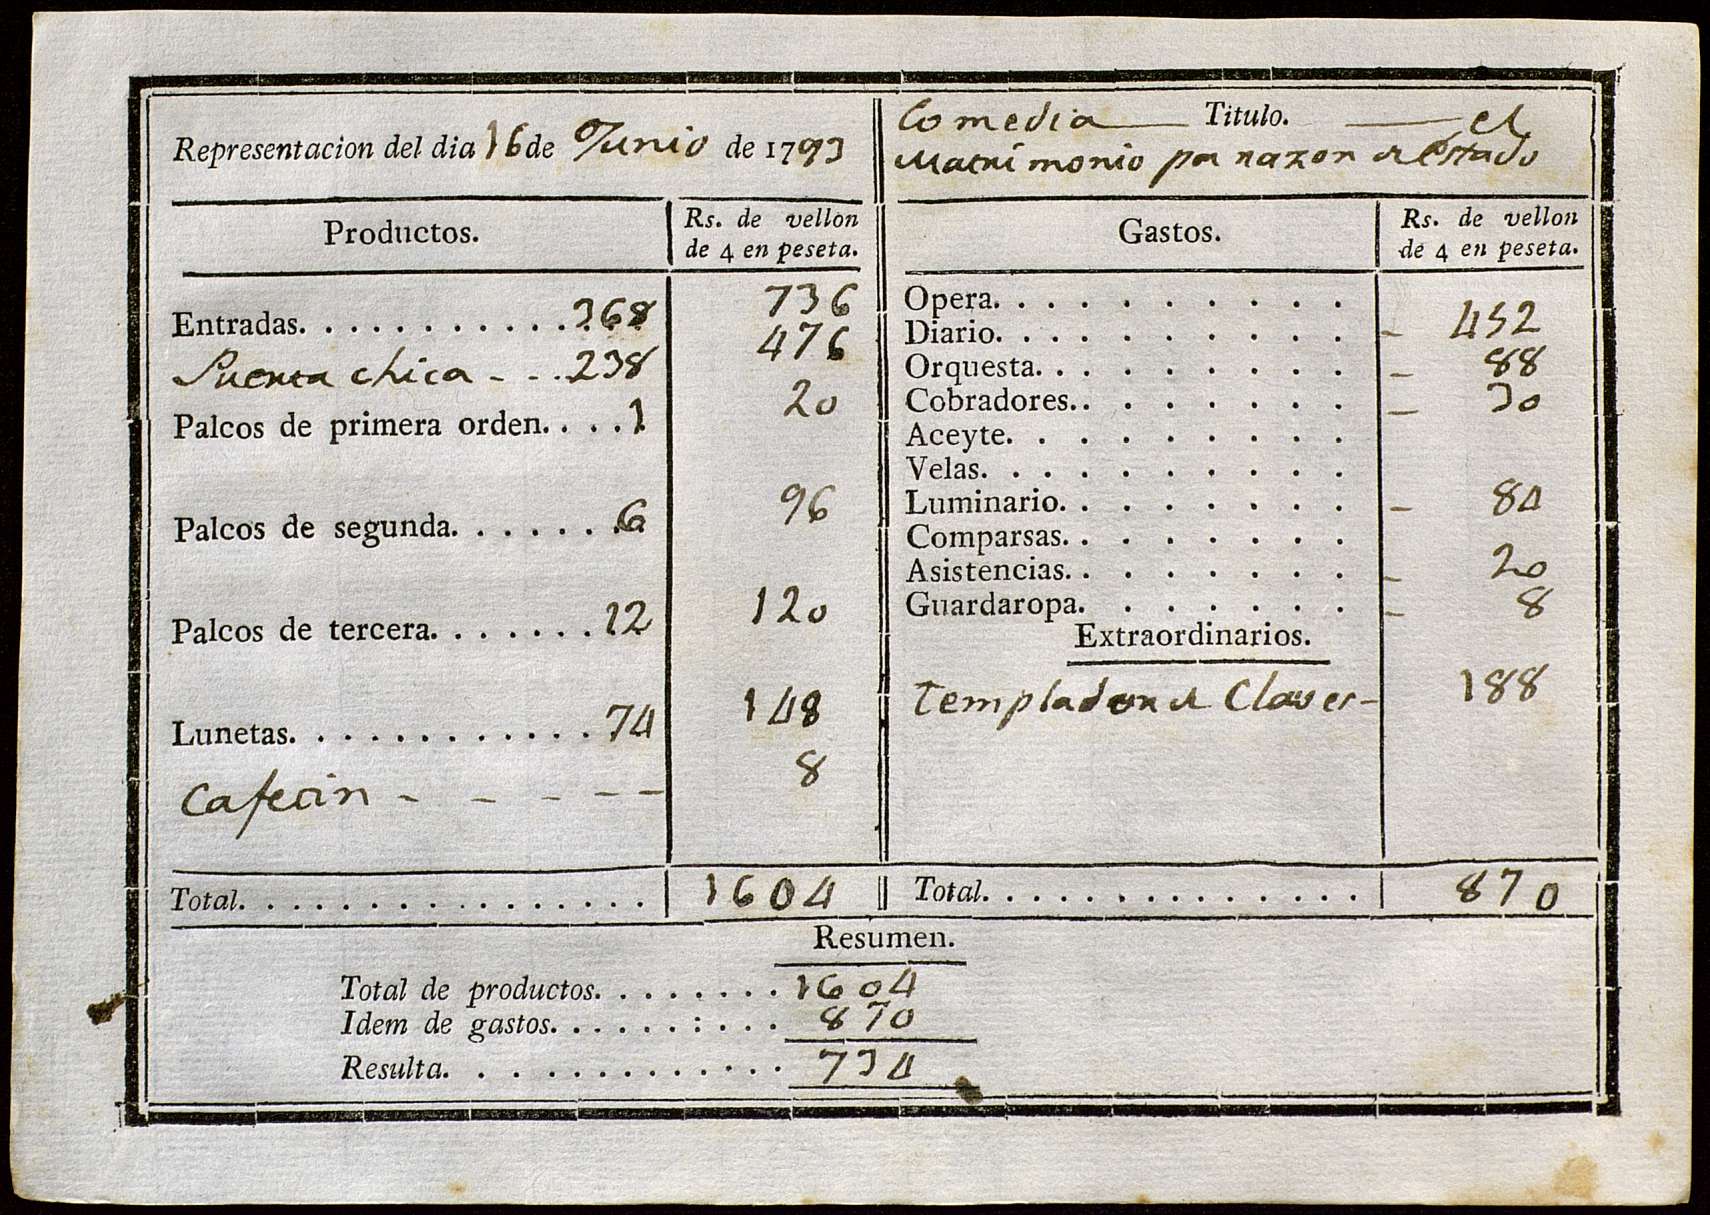 Representacion del dia 16 de Junio de 1793
Comedia Titulo. el
Matrimonio por razon de estado
Productos. Rs. de vellon
de 4 en peseta.
Entradas. . . . . . . . . . . 368 736
Puerta chica - - . 238 476
Palcos de primera orden. . . . 1 20
Palcos de segunda. . . . . . . 6 96
Palcos de tercera. . . . . . . 12 120
Lunetas. . . . . . . . . . . . 74 148
Cafecin - - - - - 8
Total. . . . . . . . . . . . . . . . 1604
Gastos. Rs. de vellon
de 4 en peseta.
Opera. . . . . . . . . .
Diario. . . . . . . . . . - 452
Orquesta. . . . . . . . . - 88
Cobradores. . . . . . . . - 30
Aceyte. . . . . . . . . .
Velas. . . . . . . . . . .
Luminario. . . . . . . . - 84
Comparsas. . . . . . . .
Asistencias. . . . . . . . - 20
Guardaropa. . . . . . . - 8
Extraordinarios.
Templador de Claves - 188
Total. . . . . . . . . . . . . . . 870
Resumen.
Total de productos. . . . . . . . 1604
Idem de gastos. . . . . . : . . . 870
Resulta. . . . . . . . . . . . . 734